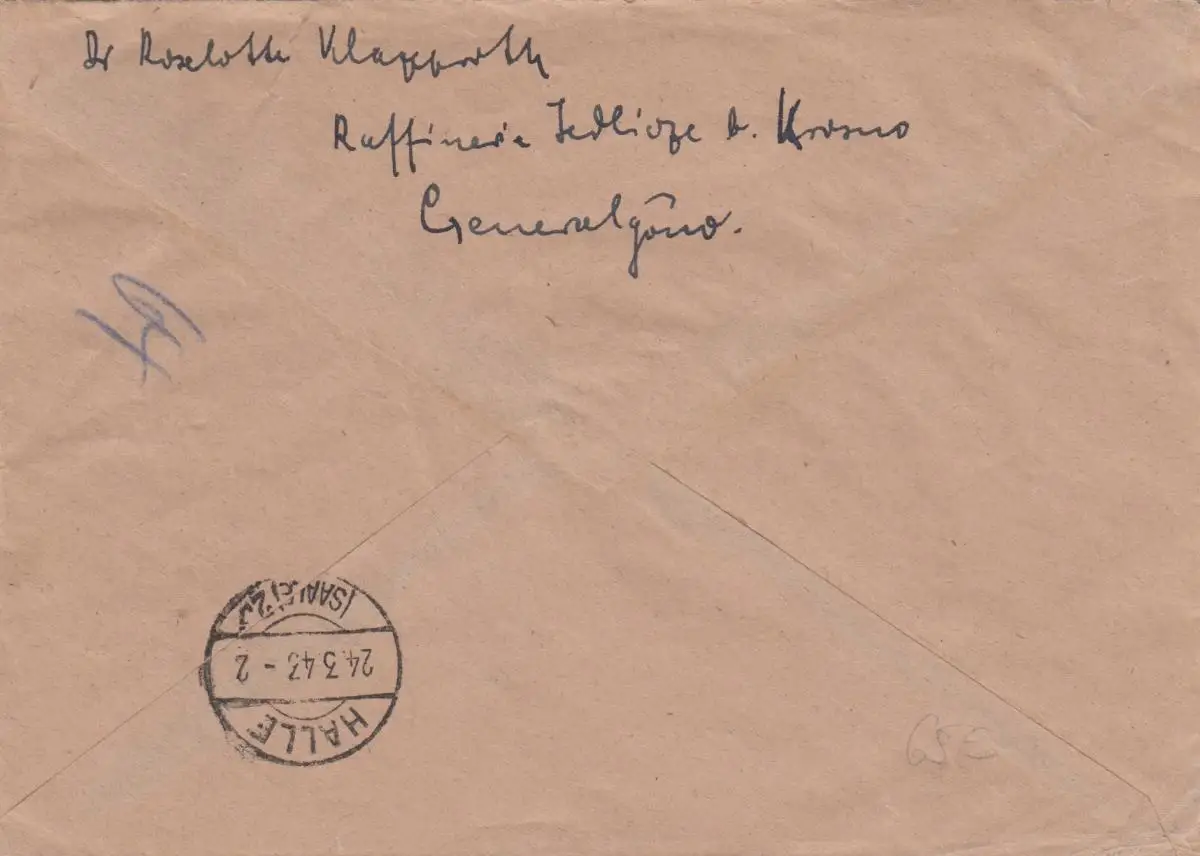 Dr Roselotte Klapproth
Raffinerie Jedlicze b. Krosno
Generalgouv.
HALLE
24.3.43 - 2
(SAALE) 2
65 E